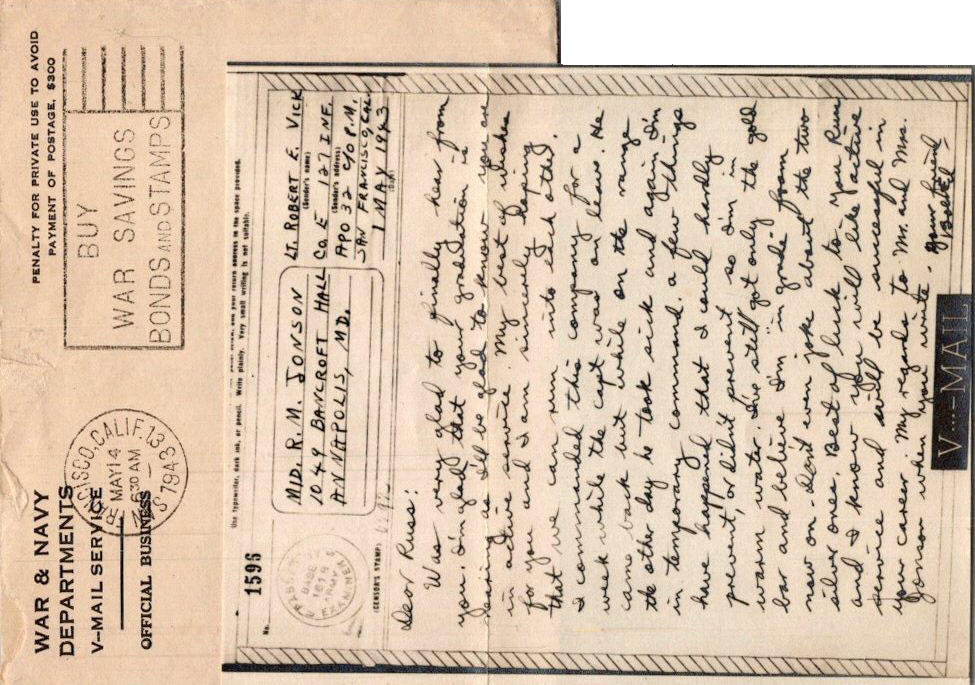 WAR & NAVY
DEPARTMENTS
V-MAIL SERVICE
OFFICIAL BUSINESS
FRANCISCO, CALIF. 13
MAY 14
630 AM
1943
PENALTY FOR PRIVATE USE TO AVOID
PAYMENT OF POSTAGE, $300
BUY
WAR SAVINGS
BONDS AND STAMPS
No.
1596
Use typewriter, dark ink, or pencil. Write plainly. Very small writing is not suitable.
MID. R. M. JONSON
1049 BANCROFT HALL
ANNAPOLIS, MD.
LT. ROBERT E. VICK
(Sender's name)
CO E 127 INF.
(Sender's address)
APO 32 C/O P.M.
SAN FRANCISCO, CAL.
1 MAY 1943
(Date)
BASE
1618
ARMY
EXAMINER
(CENSOR'S STAMP)
Dear Russ:
Was very glad to finally hear from
you. I'm glad that your graduation is
nearing as I'll be glad to know you are
in active service. My best of wishes
for you and I am sincerely hoping
that we can run into each other.
I commanded this company for a
week while the capt was on leave. He
came back but while on the range
the other day he took sick and again I'm
in temporary command. A few things
have happened that I could hardly
prevent, or didn't prevent so I'm in
warm water. I've still got only the gold
bar and believe I'm "in grade" from
now on - don't even joke about the two
silver ones. Best of luck to you Russ
and I know you will like active
service and will be successful in
your career. My regards to Mr. and Mrs.
Jonson when you write. Your friend
V···—MAIL